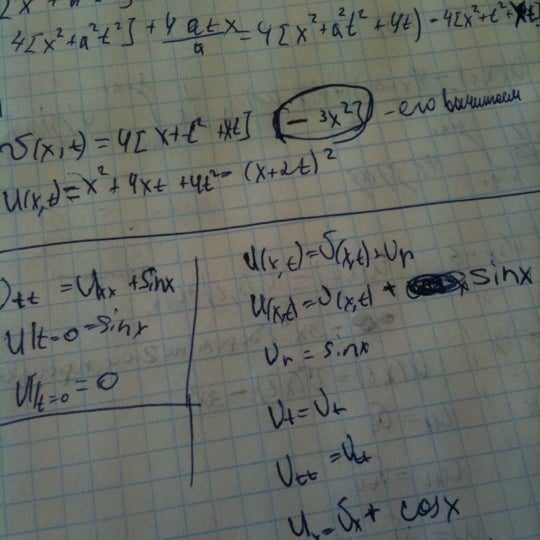 4[x²+a²t²] + 4atx/a = 4[x²+a²t²+4t) - 4[x²+t²+xt]
V(x,t) = 4[x+t²+xt] [- 3x²] - его вычитаем
U(x,t) = x²+4xt+4t² = (x+2t)²
Utt = Uxx + sinx
U|t=0 = sinx
Ut|t=0 = 0
U(x,t) = V(x,t) + Ur
U(x,t) = V(x,t) + sinx
Ur = sinx
Ut = Vt
Utt = Vtt
Ux = Vx + cosx